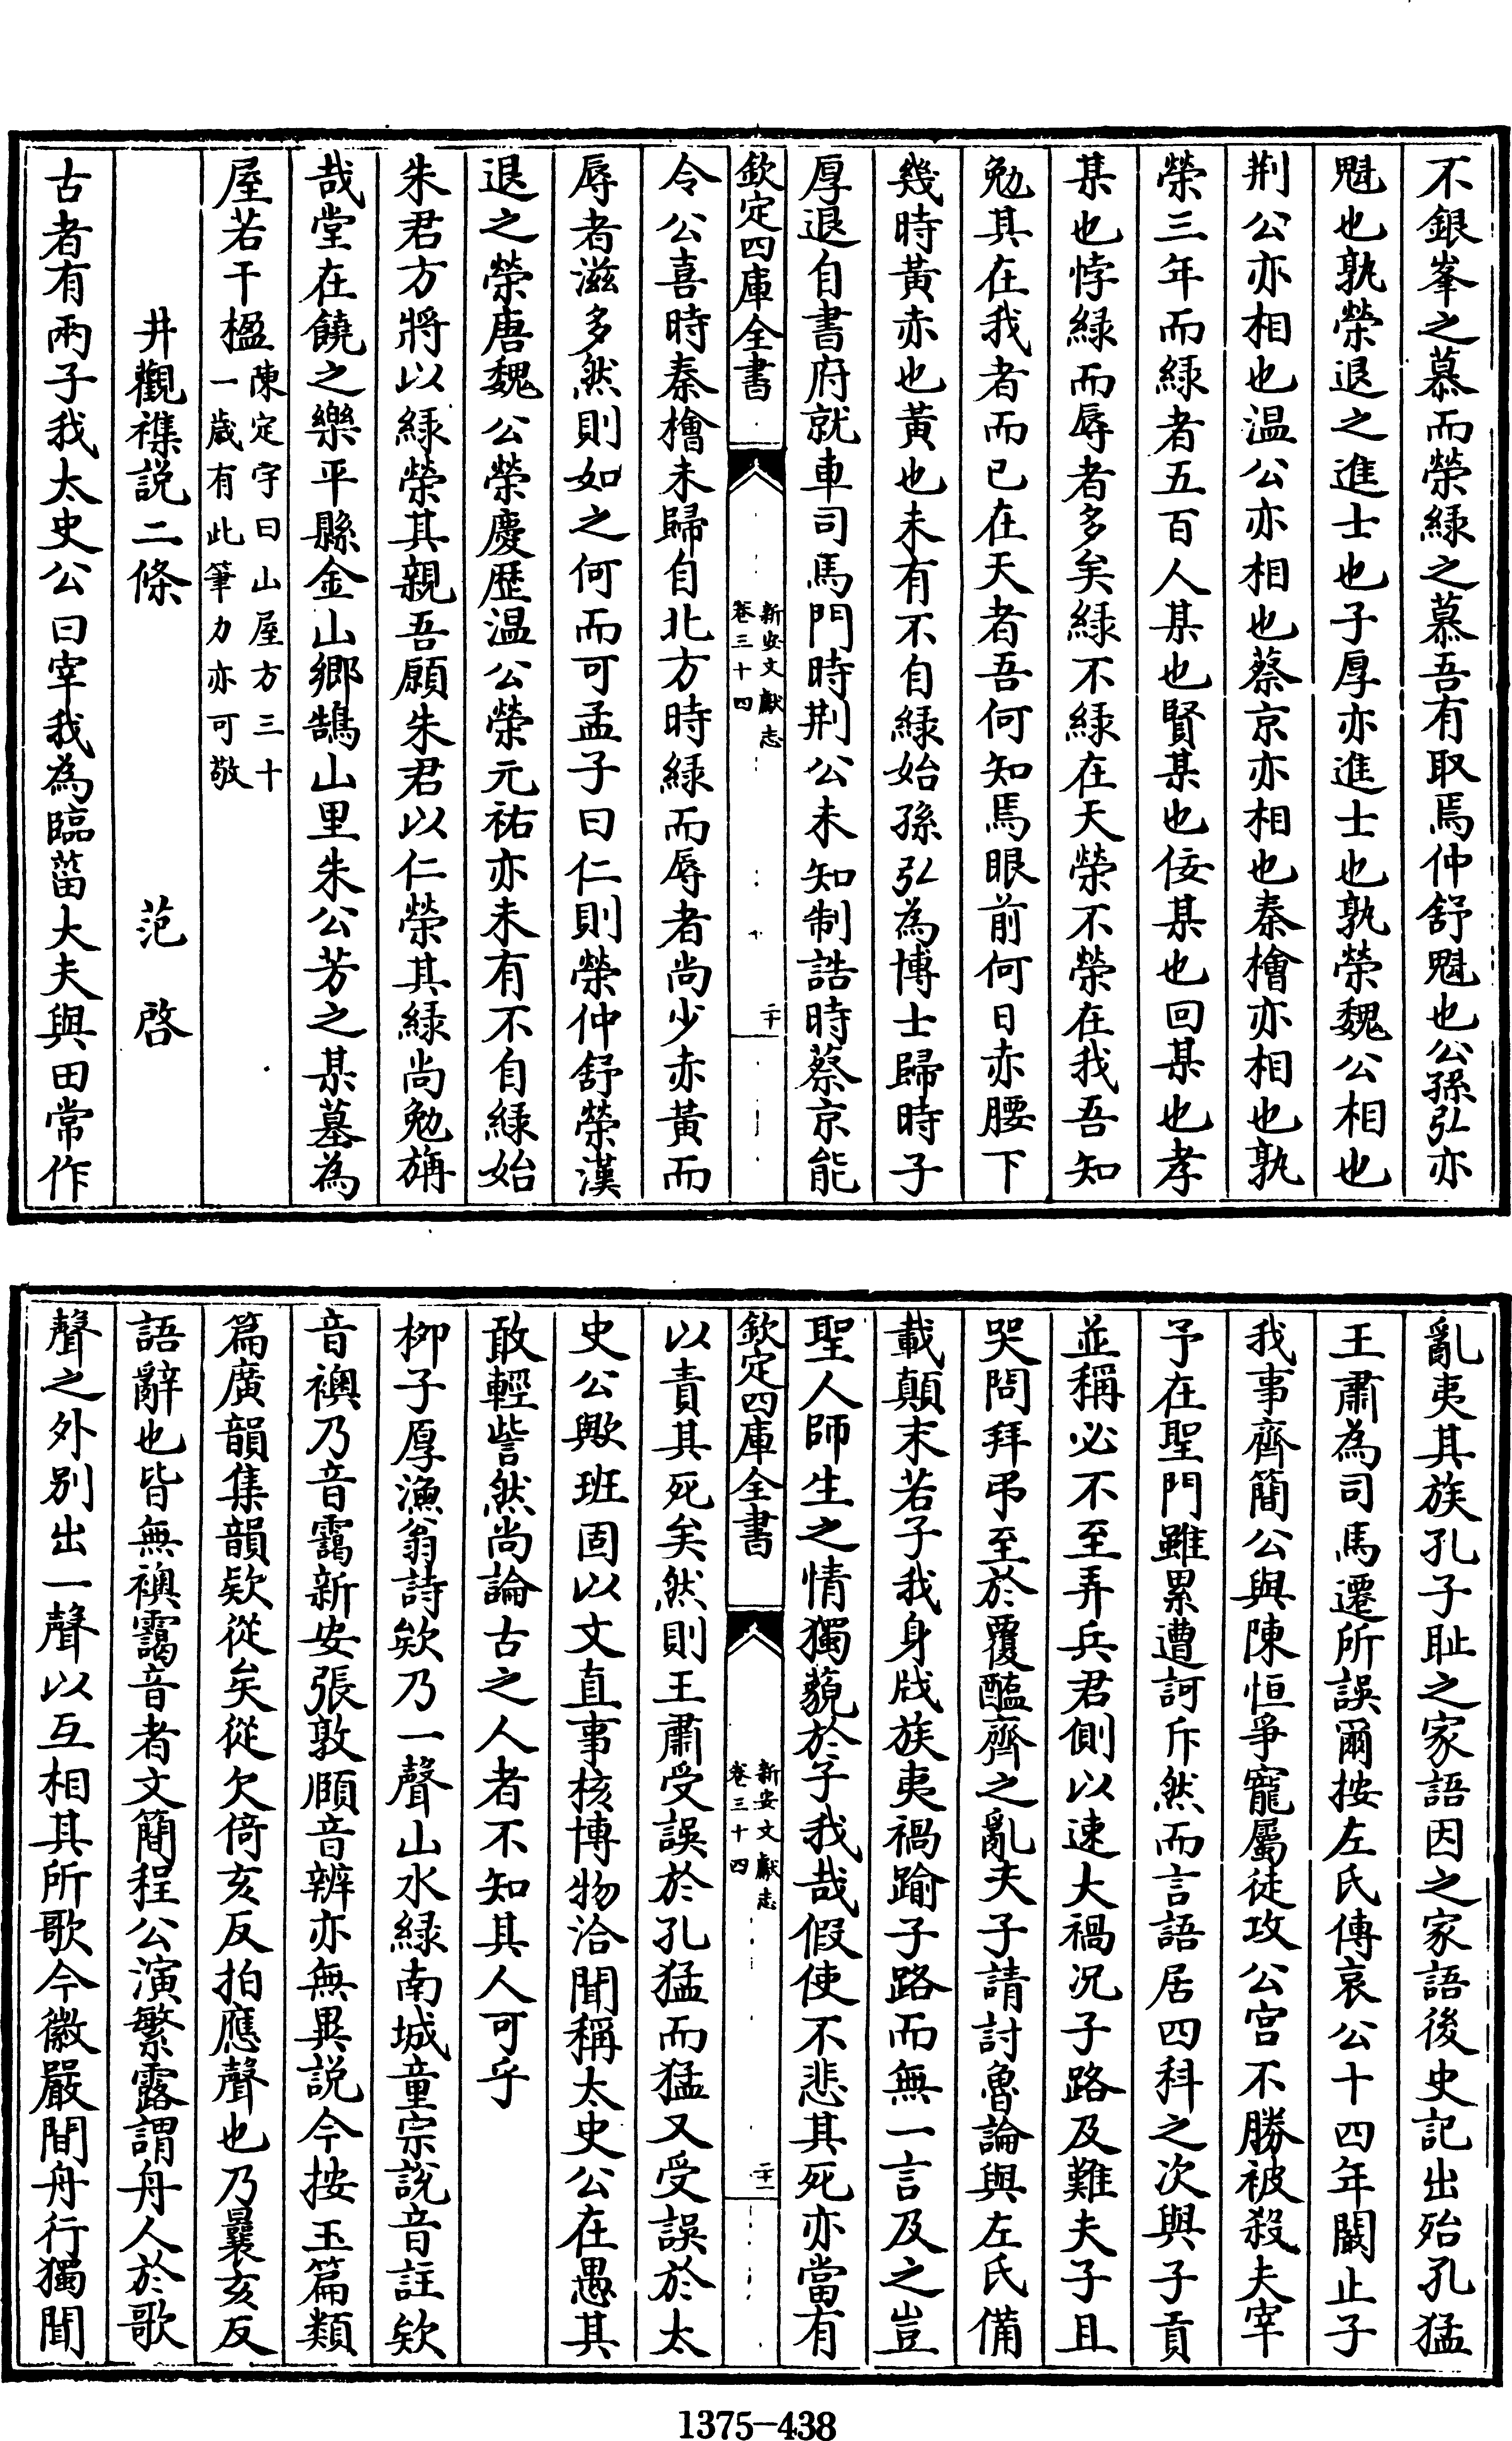 不銀峯之慕而榮緑之慕吾有取焉仲舒魁也公孫弘亦
魁也孰榮退之進士也子厚亦進士也孰榮魏公相也
荆公亦相也温公亦相也蔡京亦相也秦檜亦相也孰
榮三年而緑者五百人某也賢某也佞某也回某也孝
某也悖緑而辱者多矣緑不緑在天榮不榮在我吾知
勉其在我者而已在天者吾何知焉眼前何日赤腰下
幾時黄亦也黄也未有不自緑始孫弘為博士歸時子
厚退自書府就車司馬門時荆公未知制誥時蔡京能
欽定四庫全書
新安文獻志
卷三十四
二十
令公喜時秦檜未歸自北方時緑而辱者尚少赤黄而
辱者滋多然則如之何而可孟子曰仁則榮仲舒榮漢
退之榮唐魏公榮慶歴温公榮元祐亦未有不自緑始
朱君方將以緑榮其親吾願朱君以仁榮其緑尚勉旃
哉堂在饒之樂平縣金山鄉鵠山里朱公芳之某墓為
屋若干楹
陳定宇曰山屋方三十
一歳有此筆力亦可敬
井觀襍説二條
范啓
古者有兩子我太史公曰宰我為臨菑大夫與田常作
亂夷其族孔子耻之家語因之家語後史記出殆孔猛
王肅為司馬遷所誤爾按左氏傳哀公十四年闞止子
我事齊簡公與陳恒爭寵屬徒攻公宫不勝被殺夫宰
予在聖門雖累遭訶斥然而言語居四科之次與子貢
並稱必不至弄兵君側以速大禍况子路及難夫子且
哭問拜弔至於覆醢齊之亂夫子請討魯論與左氏備
載顛末若子我身戕族夷禍踰子路而無一言及之豈
聖人師生之情獨藐於子我哉假使不悲其死亦當有
欽定四庫全書
新安文獻志
卷三十四
二十一
以責其死矣然則王肅受誤於孔猛而猛又受誤於太
史公歟班固以文直事核博物洽聞稱太史公在愚其
敢輕訾然尚論古之人者不知其人可乎
栁子厚漁翁詩欸乃一聲山水緑南城童宗説音註欸
音襖乃音靄新安張敦頤音辨亦無異説今按玉篇類
篇廣韻集韻欵從矣從欠倚亥反拍應聲也乃曩亥反
語辭也皆無襖靄音者文簡程公演繁露謂舟人於歌
聲之外别出一聲以互相其所歌今徽嚴間舟行獨聞
1375-438